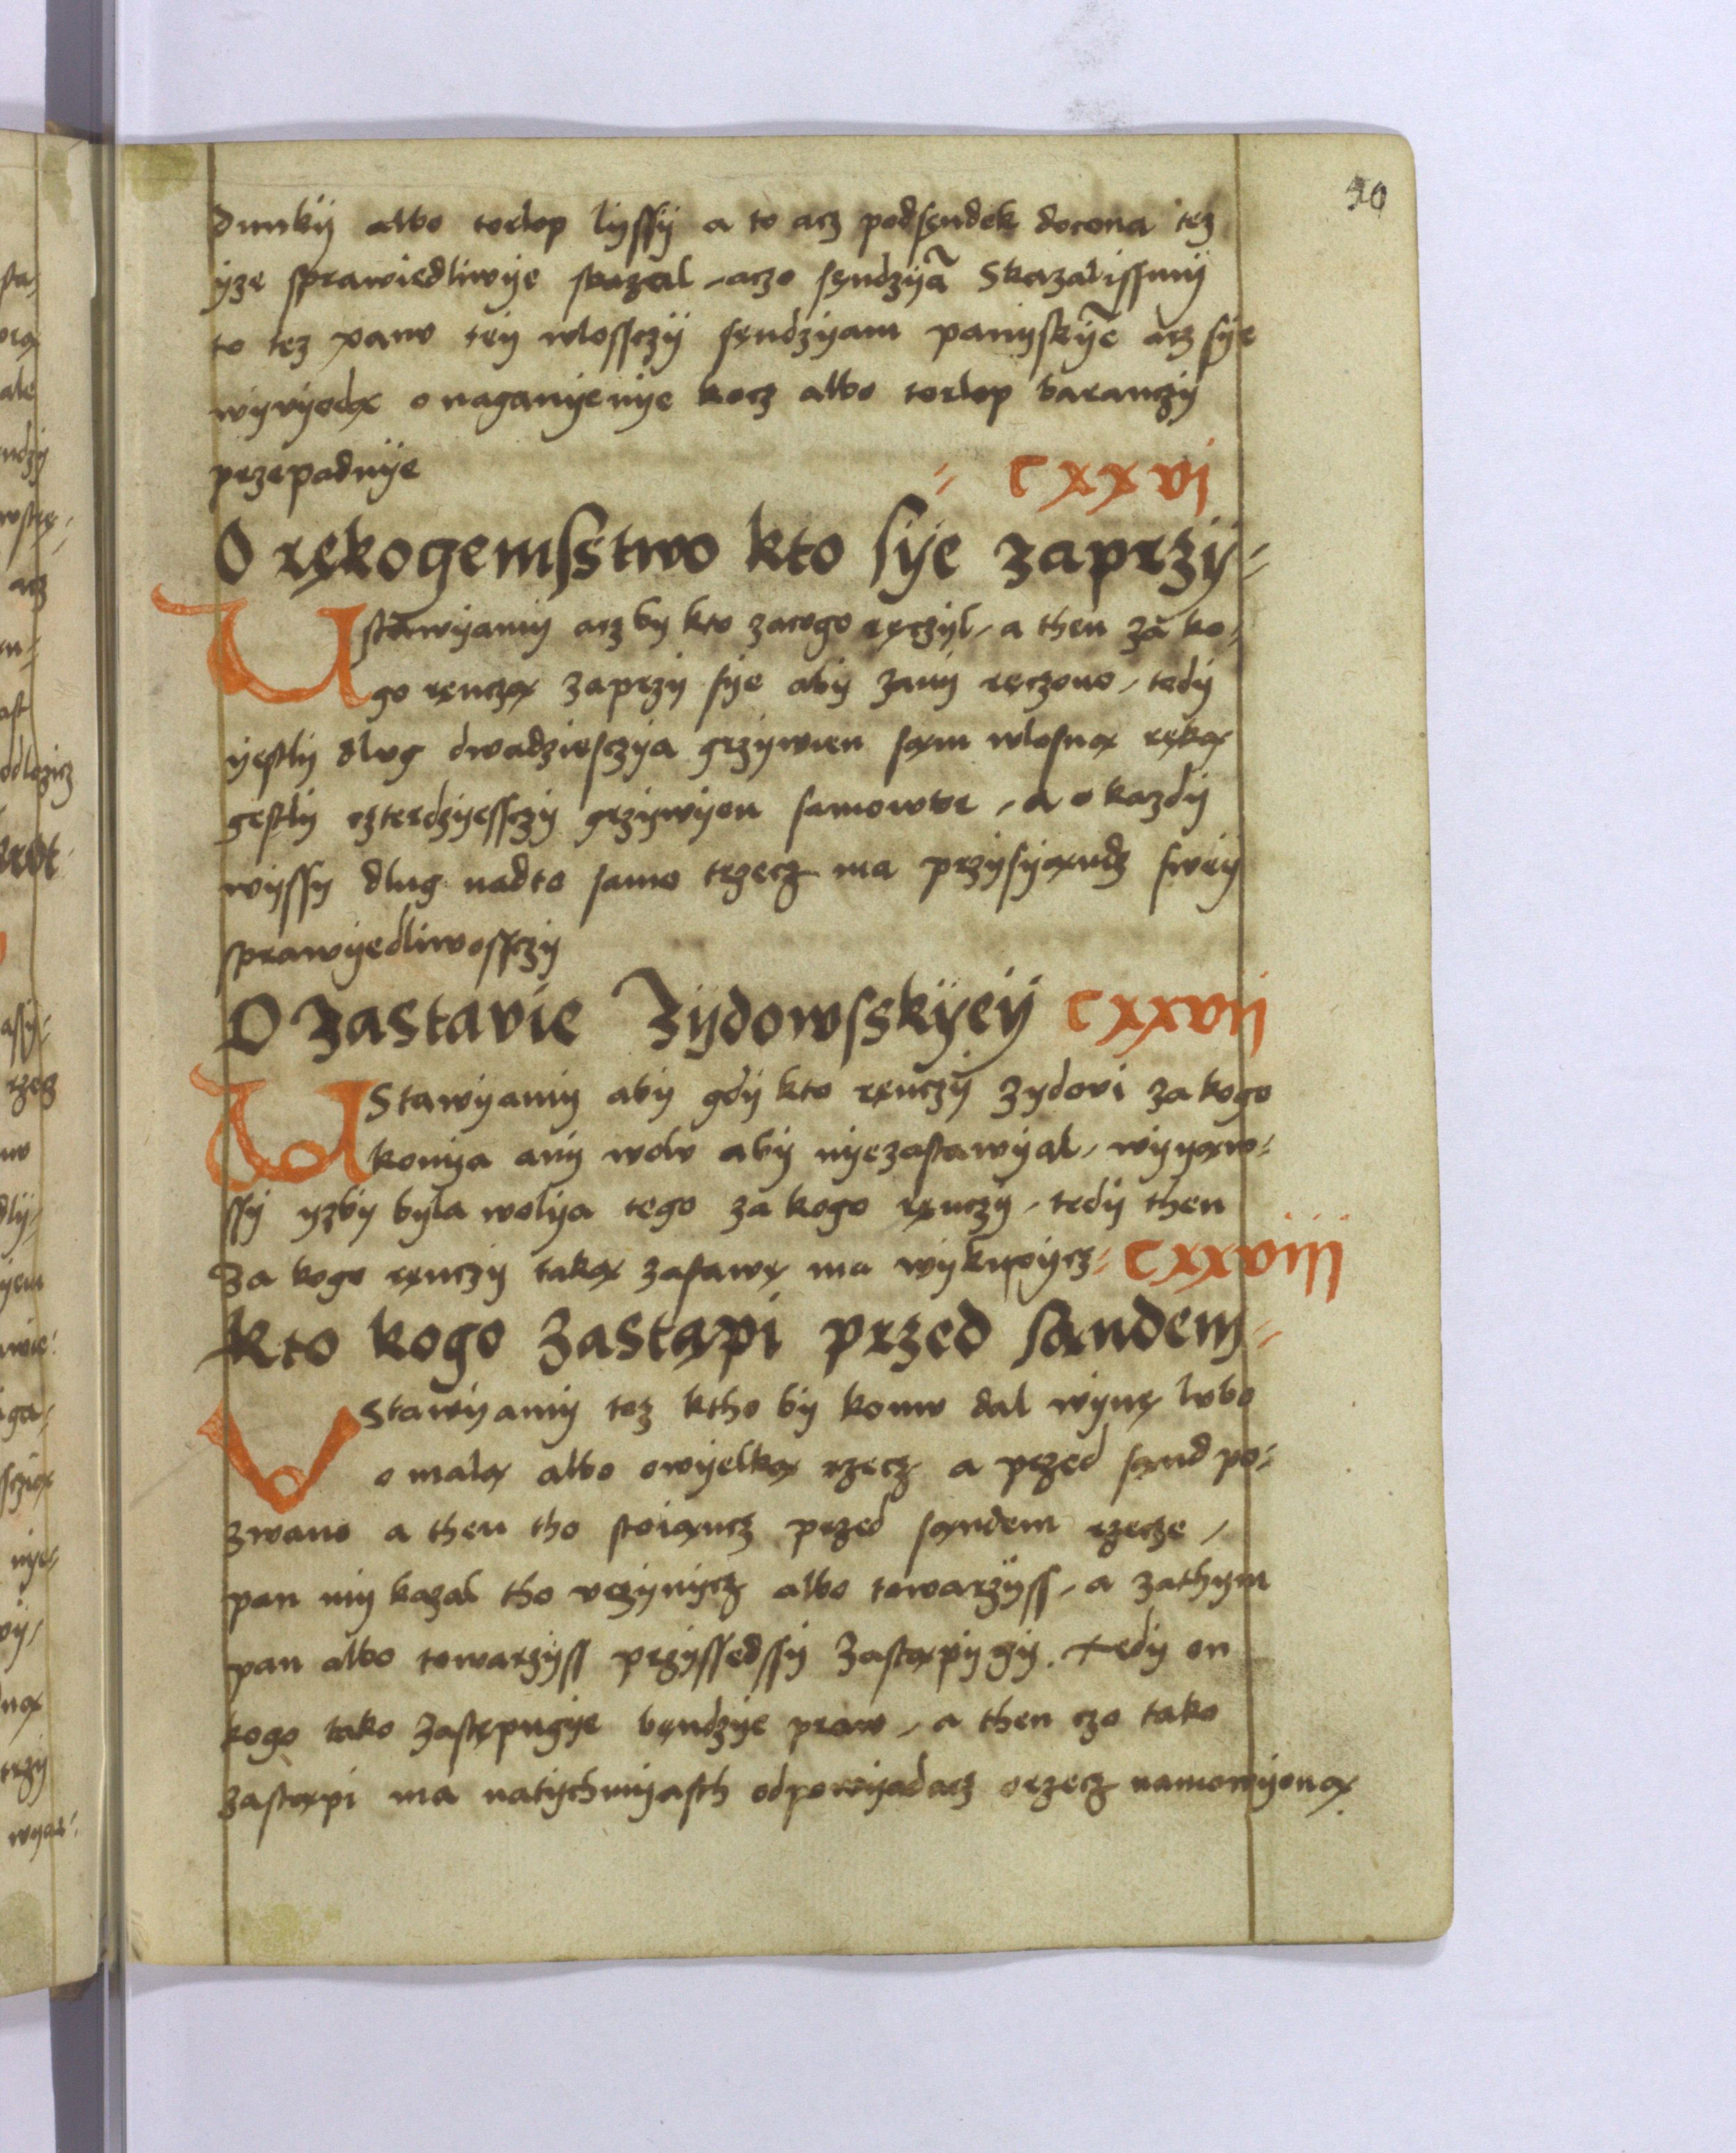 40
dunkÿ albo torlop lÿssÿ a to acz podsęndek docona tez
ÿze sprawiedliwÿe skazal / aczo sęndzÿã Skazalissmÿ
to tez paw teÿ wlossczÿ sęndzÿam panÿskÿē acz sÿe
wÿvÿodą o naganÿenÿe kocz albo torlop baranczÿ
przepadnÿe = cxxvi
O rękogemsstwo kto sÿe zaprzÿ=
Ustawÿamÿ acz bÿ kto zacogo ręczÿl / a then za ko=
go ręnczą zaprzÿ sÿe abÿ zanÿ ręczono / tedÿ
ÿestlÿ dlvg dwadziesczÿa grzÿwien sąm wlosną ręką
gestlÿ czterdzÿessczÿ grzÿwÿen samowtor / a o kazdÿ
wÿssÿ dlug nadto samo trzecz ma przÿsÿąndz sweÿ
sprawÿedliwossczÿ
O zastavie Zÿdowsskÿeÿ cxxvii
UStawÿamÿ abÿ gdÿ kto ręnczÿ zydovi za kogo
konÿa anÿ wolv abÿ nÿezastawÿal / wÿyąw=
ssÿ yzbÿ bÿla wolÿa tego za kogo ręnczÿ / tedÿ then
za kogo ręnczÿ taką zastawę ma wÿkupÿcz = cxxviii
kto kogo zastąpi przed sąndem =
VStawÿamÿ tez ktho bÿ komv dal wÿnę lvbo
o malą albo owÿelką rzecz a przed sąnd po=
zwano a then tho stoiąncz przed sąndem rzecze /
pan mÿ kazal tho vczÿnÿcz albo towarzÿss / a zathym
pan albo towarzÿss przÿssedssÿ zastąpÿ gÿ. Tedÿ on
kogo tako zastępugÿe będndzÿe praw / a then czo tako
zastąpi ma natÿchmÿasth odpowÿadacz orzecz namowÿoną